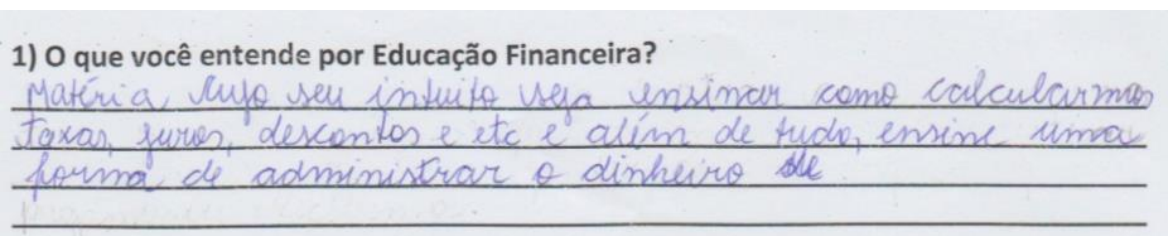 1) O que você entende por Educação Financeira?
Matéria cujo seu intuito seja ensinar como calcularmos
taxas, juros, descontos e etc e além de tudo, ensine uma
forma de administrar o dinheiro